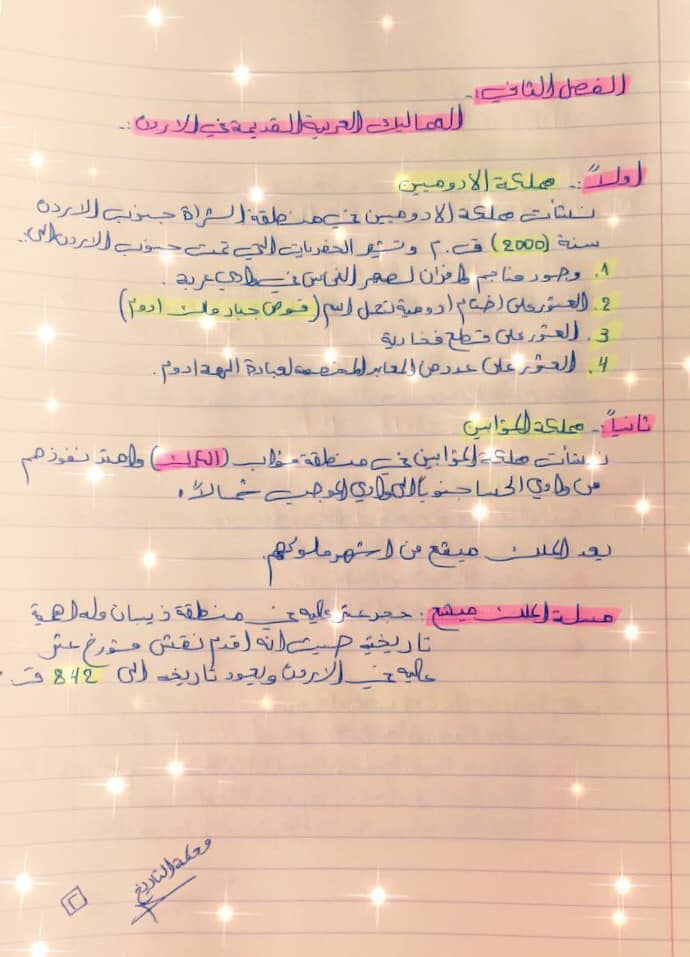 الفصل الثاني :-
الممالك العربية القديمة في الاردن :-
اولاً :- مملكة الادومين
نشأت مملكة الادومين في منطقة الشراة جنوب الاردن
سنة (2000) ق.م وتشير الحفريات التي تمت جنوب الاردن الى :-
1. وجود مناجم وافران لصهر النحاس في وادي عربة .
2. العثور على اختام ادومية تحمل اسم (قوس جبار ملك ادوم)
3. العثور على قطع فخارية
4. العثور على عدد من المعابد المخصصة لعبادة الهة ادوم .
ثانياً :- مملكة المؤابين
نشأت مملكة المؤابين في منطقة مؤاب (الكرك) وامتد نفوذهم
من وادي الحسا جنوباً الى وادي الموجب شمالاً .
يعد الملك ميشع من اشهر ملوكهم .
مسلة الملك ميشع : حجر عثر عليه في منطقة ذيبان وله اهمية
تاريخية حيث انه اقدم نقش مؤرخ عثر
عليه في الاردن ويعود تاريخه الى 842 ق.
التاريخ
٢